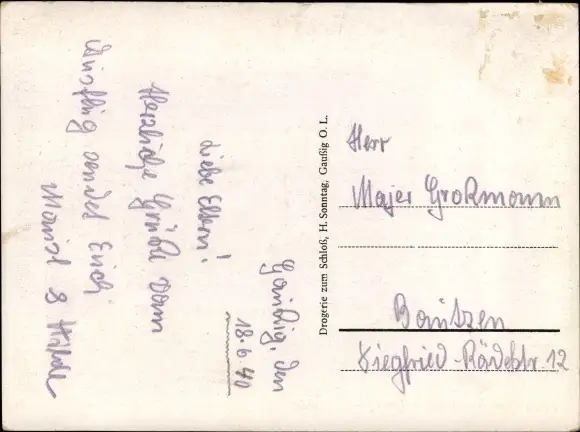 Gaußig, den
18.6.40
Liebe Eltern!
Herzliche Grüße vom
Ausflug sendet Euch
&
Drogerie zum Schloß, H. Sonntag, Gaußig O. L.
Herr
Majer Großmann
Bautzen
Siegfried-Rädelstr. 12